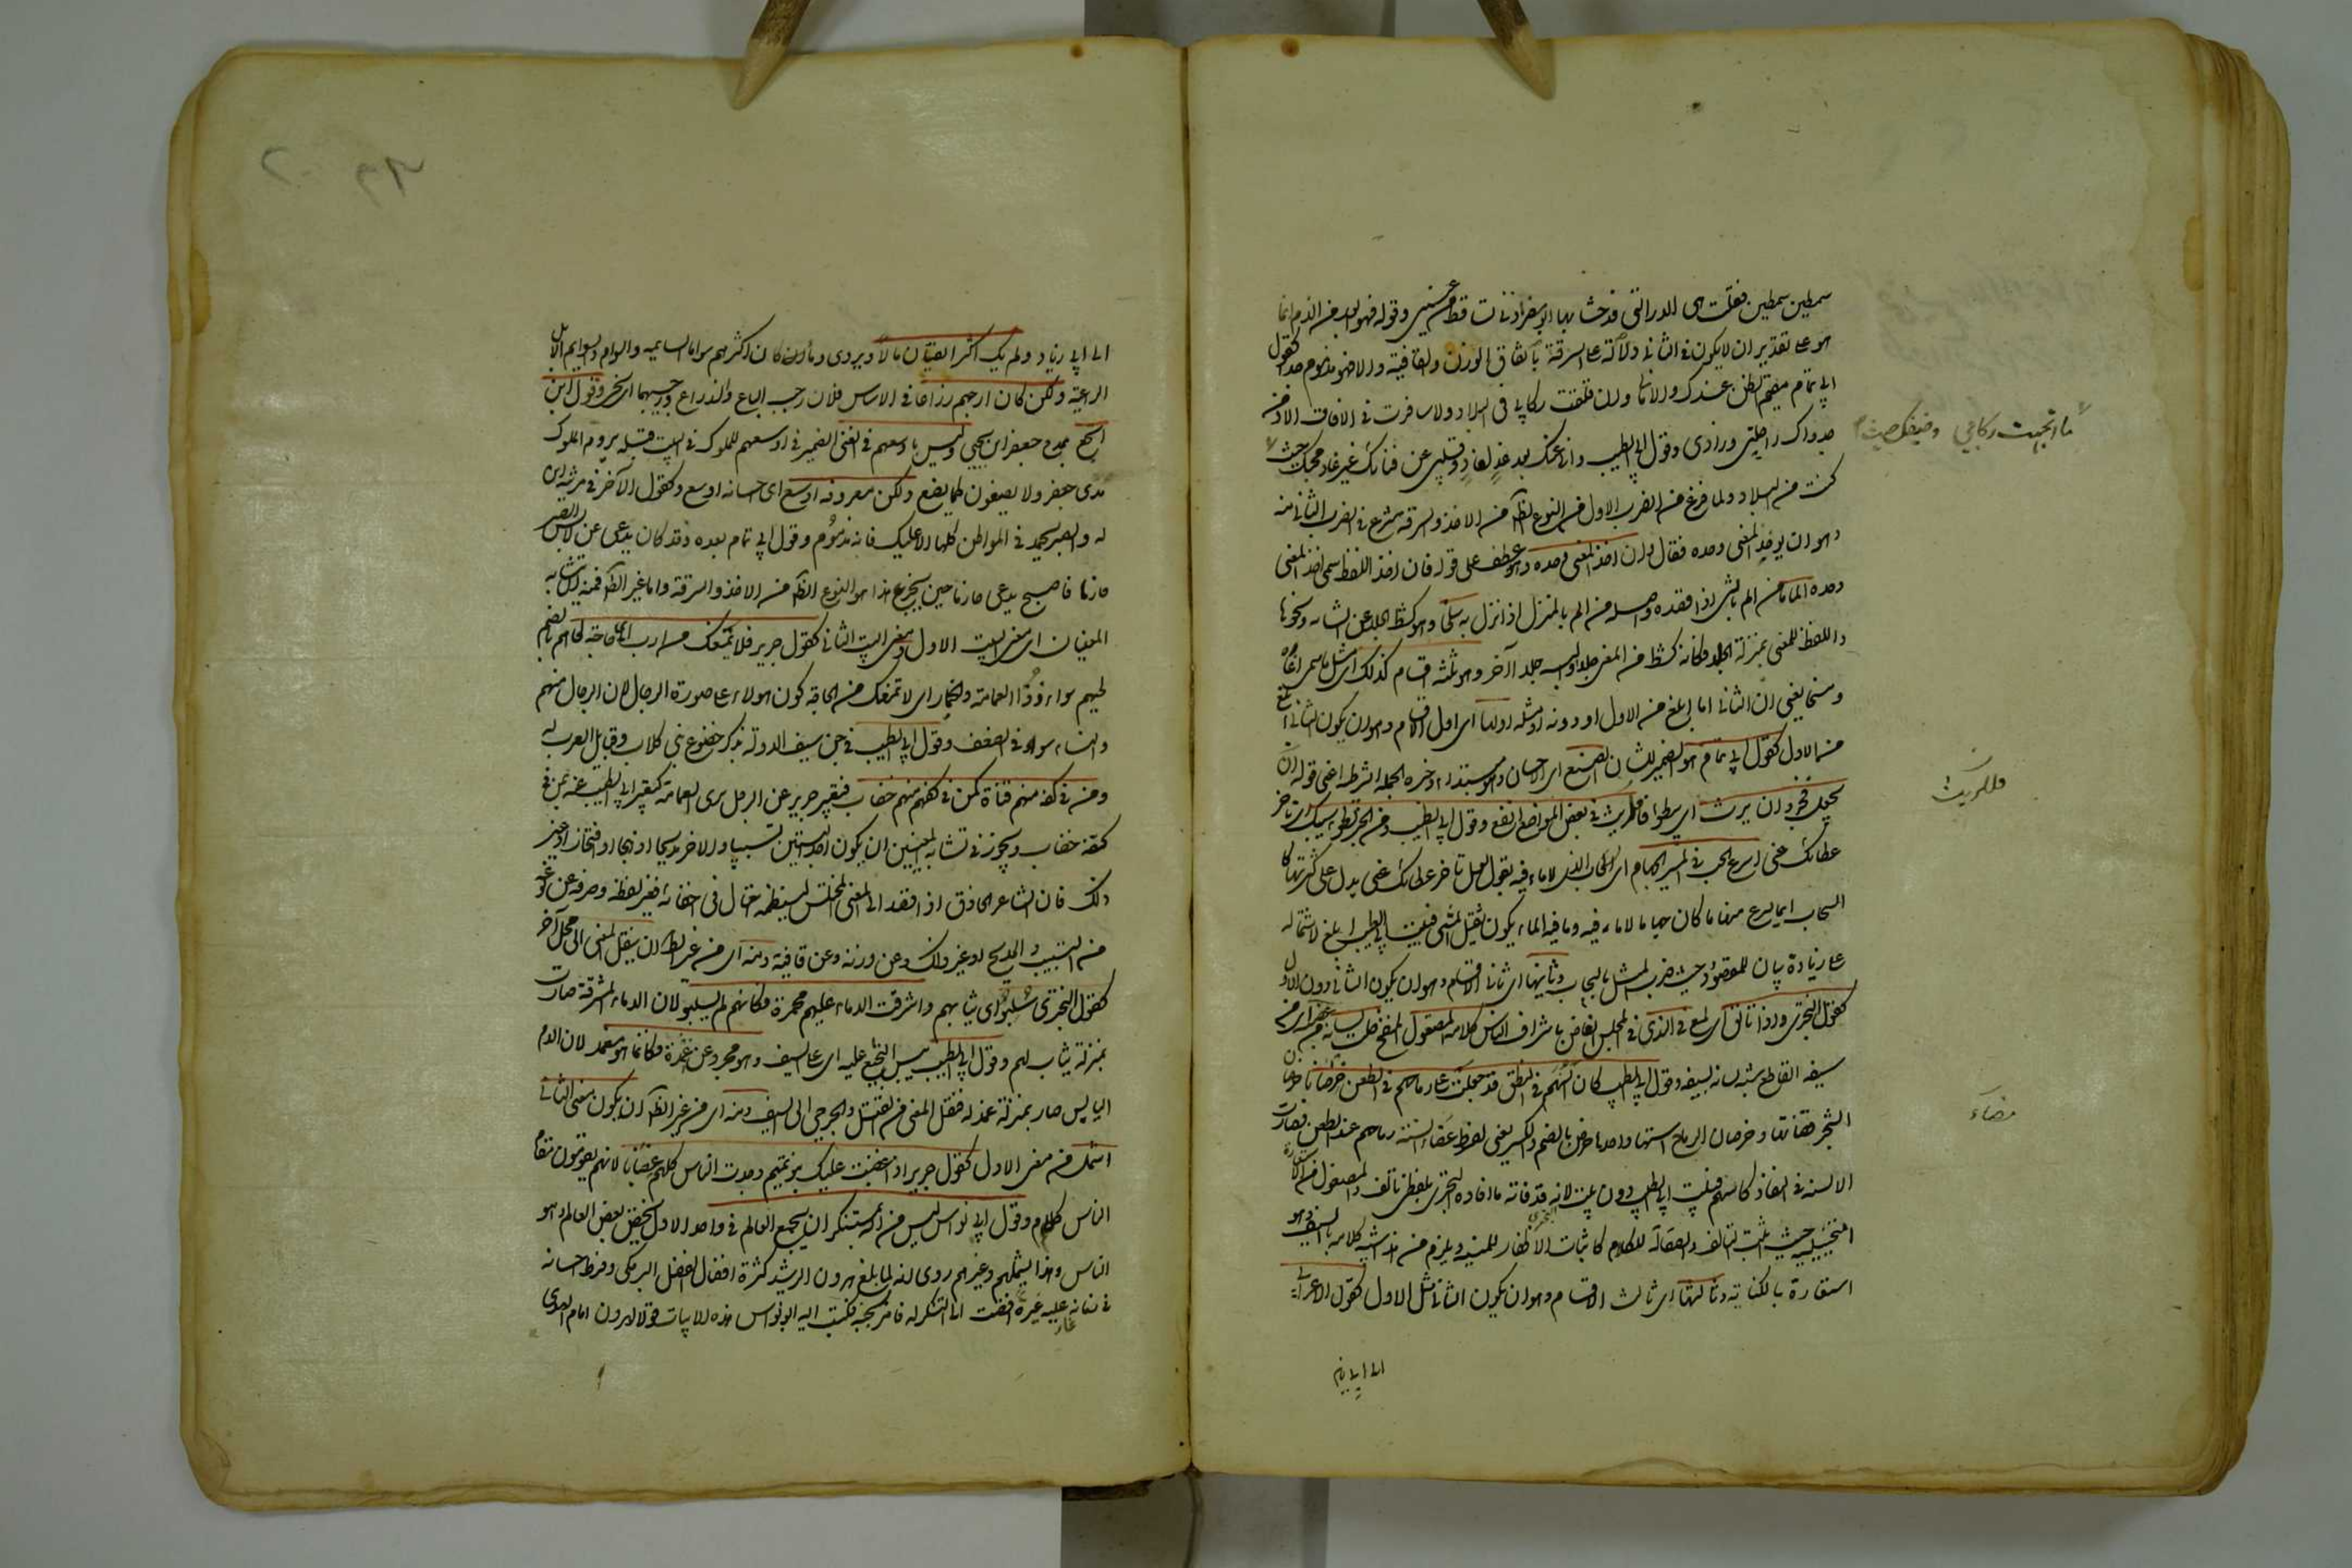 سمطين سمطين فقلت هي الدرر التي قد حشا بها ابو مضر اذني تساقط من عيني وقوله فهو ابعد من الذم انما
هو على تقدير ان لا يكون في الثاني دلالة على السرقة باتفاق الوزن والقافية والا فهو مذموم جدا كقول
ابي تمام مقيم الظن عندك والاماني وان قلقت ركابي في البلاد ولا سافرت في الافاق الا ومن
جدواك راحلتي وزادي وقول ابي الطيب واني عنك بعد غد لغاد وقلبي عن فنائك غير غاد محبك حيث
ما اتجهت ركابي وضيفك حيث
كنت من البلاد ولما فرغ من الضرب الاول من النوع الظ من الاخذ والسرقة شرع في الضرب الثاني منه
وهو ان يوخذ المعنى وحده فقال وان اخذ المعنى وحده وهو عطف على قوله فان اخذ اللفظ سمي اخذ المعنى
وحده الماما من الم بالشي اذا قصده واصله من الم بالمنزل اذا نزل به وسلخا وهو كشط الجلد عن الشاة ونحوها
واللفظ للمعنى بمنزلة الجلد فكانه كشط من المعنى جلدا والبسه جلدا آخر وهو ثلثة اقسام كذلك اي مثل ما سمي اغارة
ومسخا يعني ان الثاني اما ابلغ من الاول او دونه او مثله اولها اي اول الاقسام وهو ان يكون الثاني ابلغ
من الاول كقول ابي تمام هو الضمير للشان الصنع اي الاحسان وهو مبتداء وخبره الجملة الشرطية اعني قوله ان
يعجل فخير وان يرث اي يبطو فللريث في بعض المواضع انفع وقول ابي الطيب ومن الخير بطو سيبك اي تاخر
فللريث
عطائك عني اسرع السحب في المسير الجهام اي السحاب الذي لا ماء فيه يقول لعل تاخر عطائك عني يدل على كثرته كا
السحاب انما يسرع منها ما كان جهاما لا ماء فيه وما فيه الماء يكون ثقيل المشي فبيت ابي الطيب ابلغ لاشتماله
على زيادة بيان للمقصود حيث ضرب المثل بالسحاب وثانيها اي ثاني الاقسام وهو ان يكون الثاني دون الاول
كقول البحتري واذا تالق اي لمع في الندي في المجلس الغاص باشراف الناس كلامه المصقول المنقح خلت لسانه من عضبه اي من
سيفه القاطع شبه لسانه بسيفه وقول ابي الطيب كان السنهم في النطق قد جعلت على رماحهم في الطعن خرصانا خرصان
الشجر وخرصان الرماح اسنتها واحدها خرص بالضم والكسر يعني لفرط مضاء اسنة رماحهم عند الطعن فصارت
مضاء
الالسنة في النفاذ كاسهم فبيت ابي الطيب دون بيته لانه قد فاته ما افاده البحتري بلفظي تالق والمصقول من الاستعارة
التخييلية حيث اثبت التالق والصقالة للكلام كاثبات الاظفار للمنية ويلزم من هذا تشبيه كلامه بالسيف وهو
استعارة بالكناية وثالثها اي ثالث الاقسام وهو ان يكون الثاني مثل الاول كقول الاعرابي
الى ابي زياد
الى ابي زياد ولم يك اكثر الفتيان مالا ويروى وما ان كان اكثرهم سواما السايمة والسوام والسوايم الابل
الراعية ولكن كان ارحبهم ذراعا في الاساس فلان رحب الباع والذراع ورحيبهما اي سخي وقول ابن
اشجع يمدح جعفر ابن يحيى وليس باوسعهم في الغنى الضمير في اوسعهم للملوك في البيت قبله يروم الملوك
مدى جعفر ولا يصنعون كما يصنع ولكن معروفه اوسع اي احسانه اوسع وكقول الآخر في مرثية ابن
له والصبر يحمد في المواطن كلها الا عليك فانه مذموم وقول ابي تمام بعده وقد كان يدعى لابس الصبر
حازما فاصبح يدعى حازما حين يجزع هذا هو النوع الظ من الاخذ والسرقة واما غير الظ فمنه ان يتشابه
المعنيان اي معنى البيت الاول ومعنى البيت الثاني كقول جرير فلا يمنعك من ارب اي حاجة لحاهم بالضم
لحيهم سواء ذو العمامة والخمار اي لا تمنعك من الحاجة كون هولاء على صورة الرجال لان الرجال منهم
والنساء سواء في الضعف وقول ابي الطيب في سيف الدولة يذكر خضوع بني كلاب وقبايل العرب له
ومن في كفه منهم قناة كمن في كفه منهم خضاب فتعبير جرير عن الرجل بذي العمامة كتعبير ابي الطيب عنه بمن في
كفه خضاب ويجوز في تشابه المعنيين ان يكون احد البيتين تشبيبا والاخر مديحا او هجاء او افتخارا او غير
ذلك فان الشاعر الحاذق اذا قصد الى المعنى المختلس لينظمه احتال في اخفائه فغير لفظه وصرفه عن نوعه
من التشبيب والمديح او غير ذلك وعن وزنه وعن قافيته ومنه اي من غير الظ ان ينقل المعنى الى محل آخر
كقول البحتري سلبوا اي ثيابهم واشرقت الدماء عليهم محمرة فكانهم لم يسلبوا لان الدماء المشرقة صارت
بمنزلة ثياب لهم وقول ابي الطيب يبس النجيع عليه اي على السيف وهو مجرد عن غمده فكانما هو مغمد لان الدم
اليابس صار بمنزلة غمد له فنقل المعنى من القتلى والجرحى الى السيف ومنه اي من غير الظ ان يكون معنى الثاني
اشمل من معنى الاول كقول جرير اذا غضبت عليك بنو تميم وجدت الناس كلهم غضابا لانهم يقومون مقام
الناس كلهم وقول ابي نواس ليس من الله بمستنكر ان يجمع العالم في واحد الاول يختص ببعض العالم وهو
الناس وهذا يشملهم وغيرهم روي انه لما بلغ هرون الرشيد كثرة افضال الفضل البرمكي وفرط احسانه
في زمانه غار عليه غيرة افضت الى التنكر له فامر بحبسه فكتب اليه ابو نواس هذه الابيات قولا لهرون امام الهدى